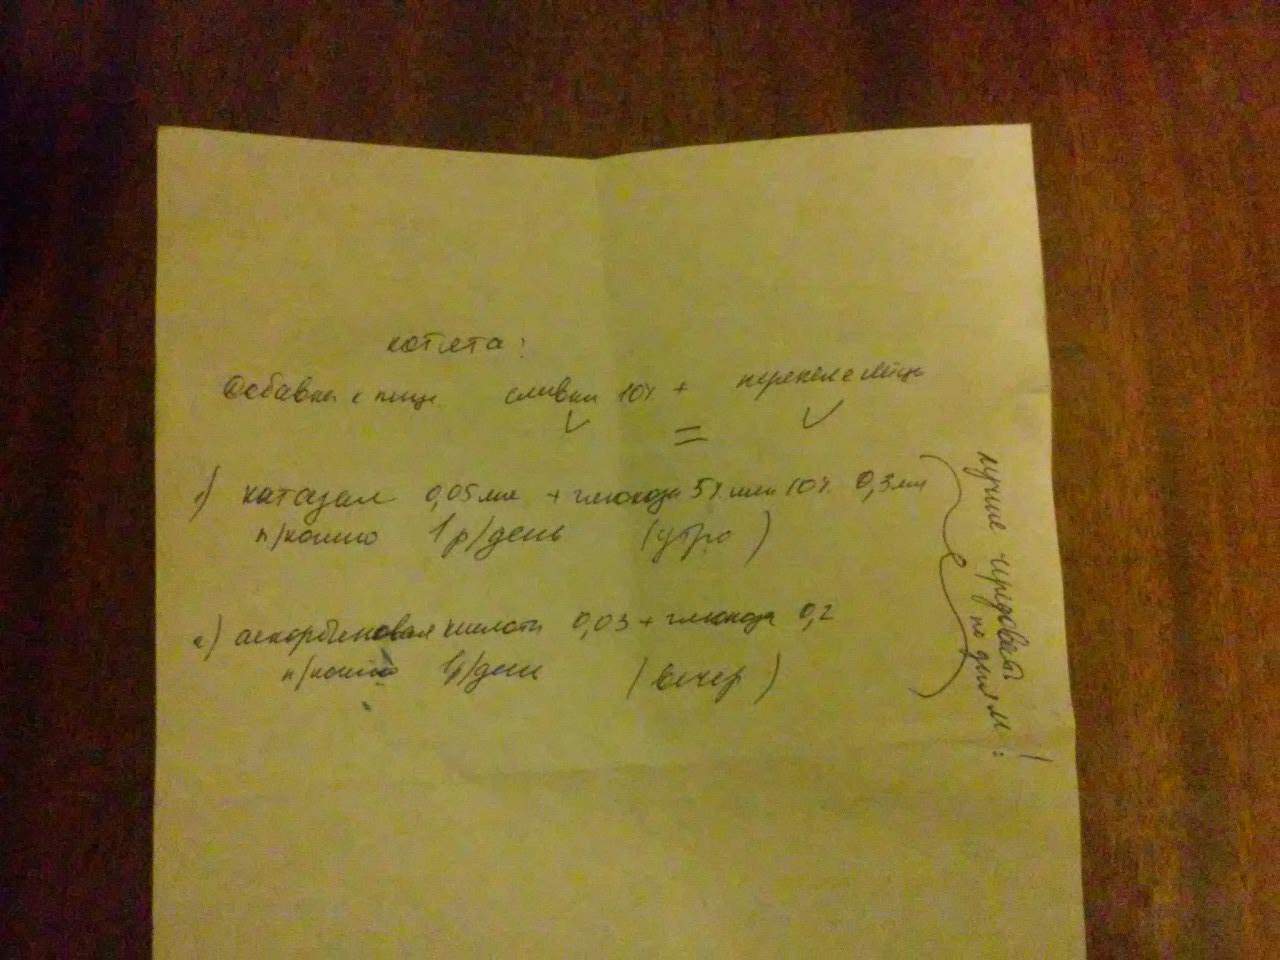 котята:
Добавки к пище сливки 10% + перепел. яйцо
=
1) катазал 0,05 мл + глюкоза 5% или 10% 0,3 мл
п/кожно 1р/день (утро)
2) аскорбиновая кислота 0,03 + глюкоза 0,2
п/кожно 1р/день (вечер)
лучше чередовать
по дням!